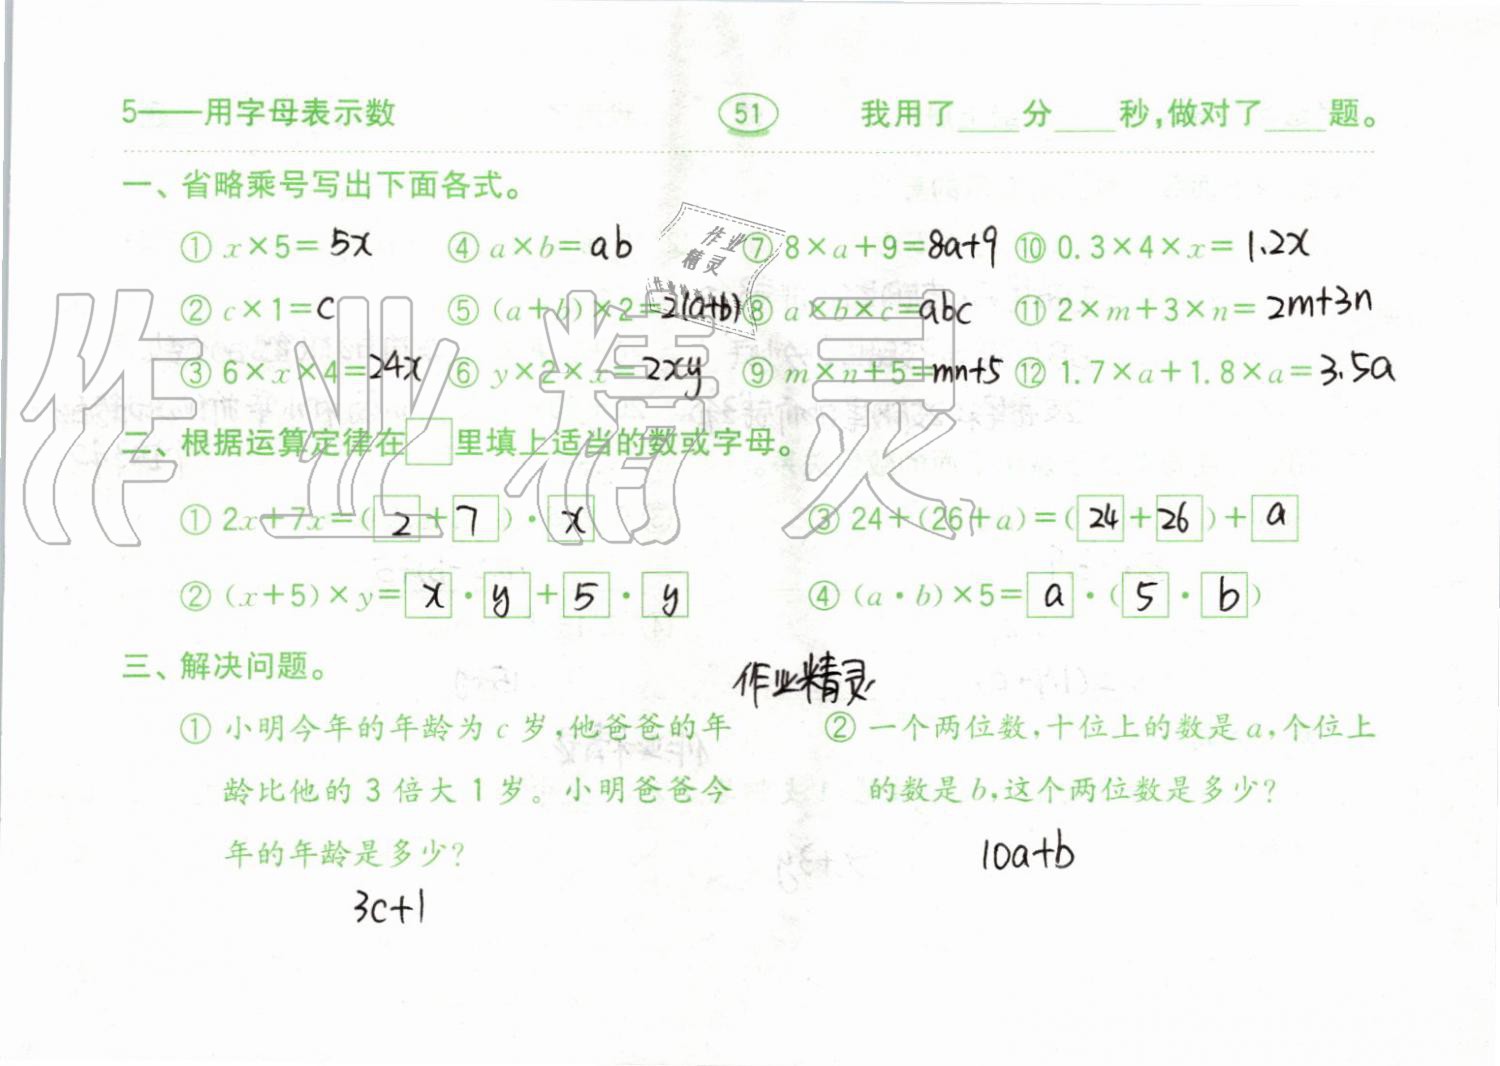 5——用字母表示数 51 我用了____分____秒,做对了____题。
一、省略乘号写出下面各式。
① x×5=5x ④ a×b=ab ⑦ 8×a+9=8a+9 ⑩ 0.3×4×x=1.2x
② c×1=c ⑤ (a+b)×2=2(a+b) ⑧ a×b×c=abc ⑪ 2×m+3×n=2m+3n
③ 6×x×4=24x ⑥ y×2×x=2xy ⑨ m×n+5=mn+5 ⑫ 1.7×a+1.8×a=3.5a
二、根据运算定律在□里填上适当的数或字母。
① 2x+7x=(2+7)·x ③ 24+(26+a)=(24+26)+a
② (x+5)×y=x·y+5·y ④ (a·b)×5=a·(5·b)
三、解决问题。
作业精灵
① 小明今年的年龄为c岁,他爸爸的年
龄比他的3倍大1岁。小明爸爸今
年的年龄是多少?
3c+1
② 一个两位数,十位上的数是a,个位上
的数是b,这个两位数是多少?
10a+b
作业精灵
作业
精灵